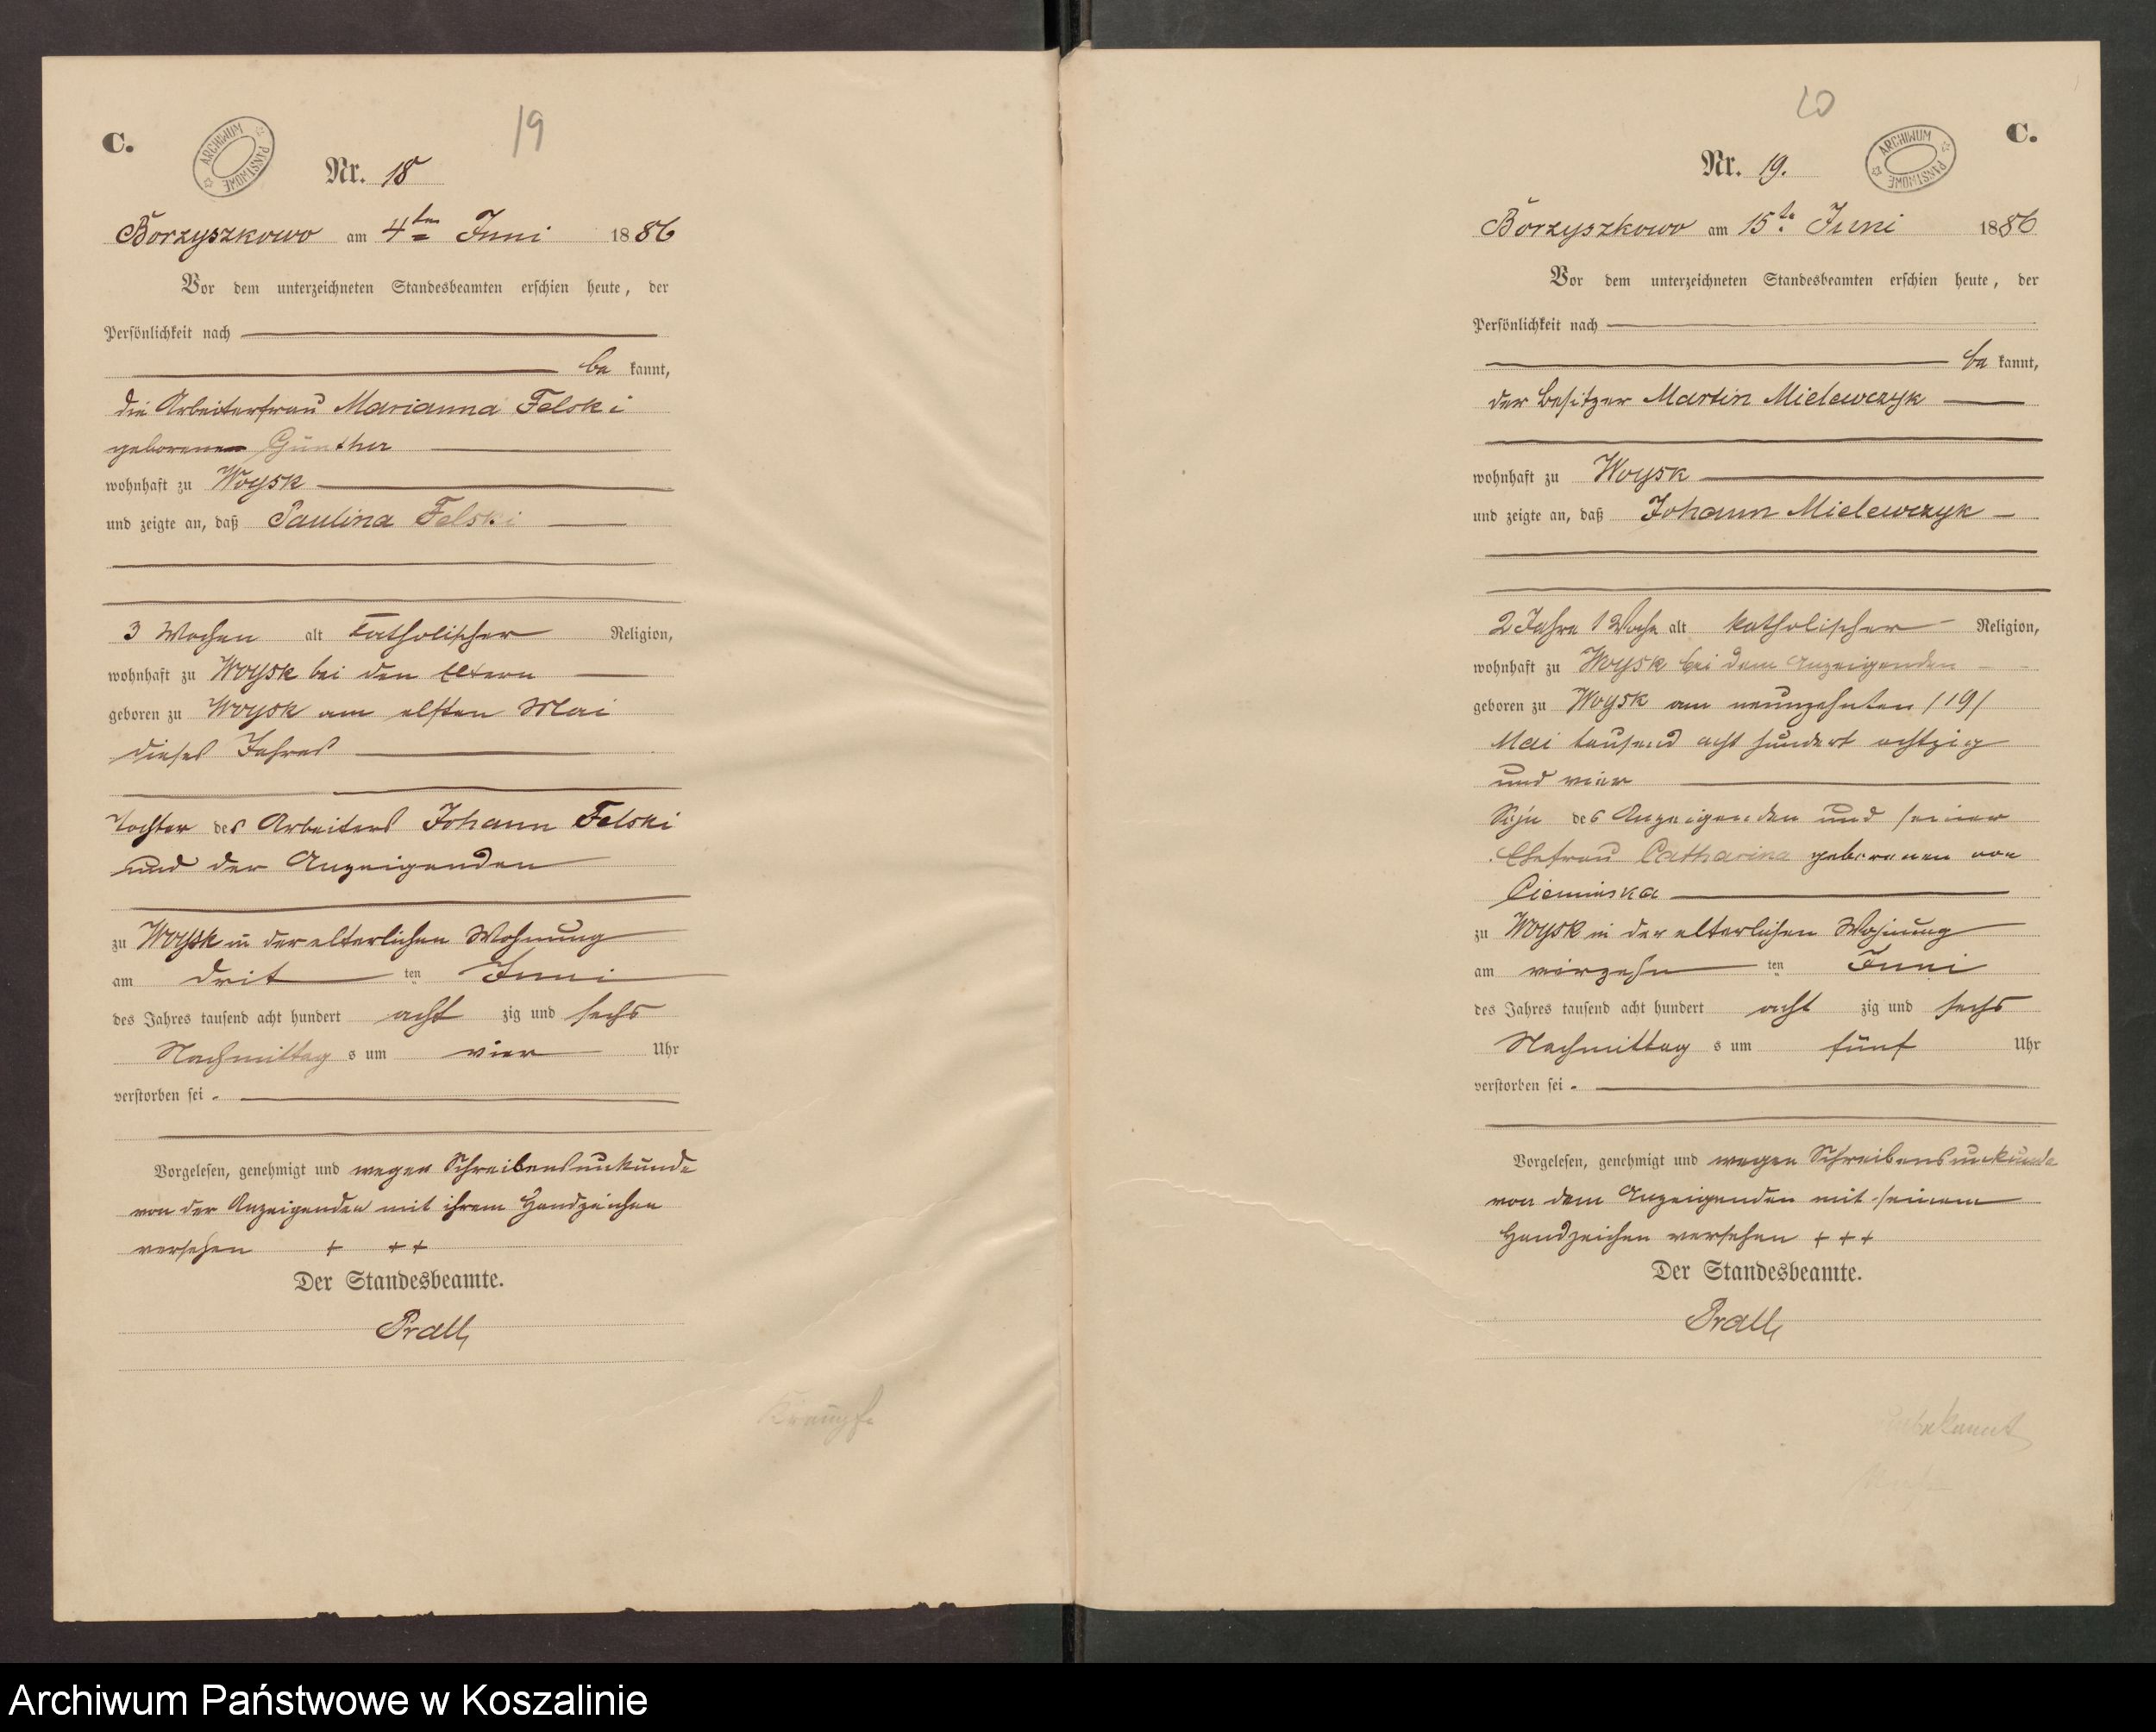 19
C.
ARCHIWUM PAŃSTWOWE
Nr. 18
Borzyszkowo am 4ten Juni 1886
Vor dem unterzeichneten Standesbeamten erschien heute, der
Persönlichkeit nach
be kannt,
die Arbeiterfrau Marianna Felski
geborene Günther
wohnhaft zu Woysk
und zeigte an, daß Paulina Felski
3 Wochen alt katholischer Religion,
wohnhaft zu Woysk bei den Eltern
geboren zu Woysk am elften Mai
dieses Jahres
Tochter des Arbeiters Johann Felski
und der Anzeigenden
zu Woysk in der elterlichen Wohnung
am drit ten Juni
des Jahres tausend acht hundert acht zig und sechs
Nachmittag s um vier Uhr
verstorben sei.
Vorgelesen, genehmigt und wegen Schreibensunkunde
von der Anzeigenden mit ihrem Handzeichen
versehen + + +
Der Standesbeamte.
Prall
Krämpfe
20
C.
ARCHIWUM PAŃSTWOWE
Nr. 19.
Borzyszkowo am 15te Juni 1886
Vor dem unterzeichneten Standesbeamten erschien heute, der
Persönlichkeit nach
be kannt,
der Besitzer Martin Mielewczyk
wohnhaft zu Woysk
und zeigte an, daß Johann Mielewczyk
2 Jahre 1 Woche alt katholischer Religion,
wohnhaft zu Woysk bei dem Anzeigenden
geboren zu Woysk am neunzehnten /19/
Mai tausend acht hundert achtzig
und vier
Sohn des Anzeigenden und seiner
Ehefrau Catharina geborenen von
Cieminska
zu Woysk in der elterlichen Wohnung
am vierzehn ten Juni
des Jahres tausend acht hundert acht zig und sechs
Nachmittag s um fünf Uhr
verstorben sei.
Vorgelesen, genehmigt und wegen Schreibensunkunde
von dem Anzeigenden mit seinem
Handzeichen versehen + + +
Der Standesbeamte.
Prall
unbekannt
Archiwum Państwowe w Koszalinie